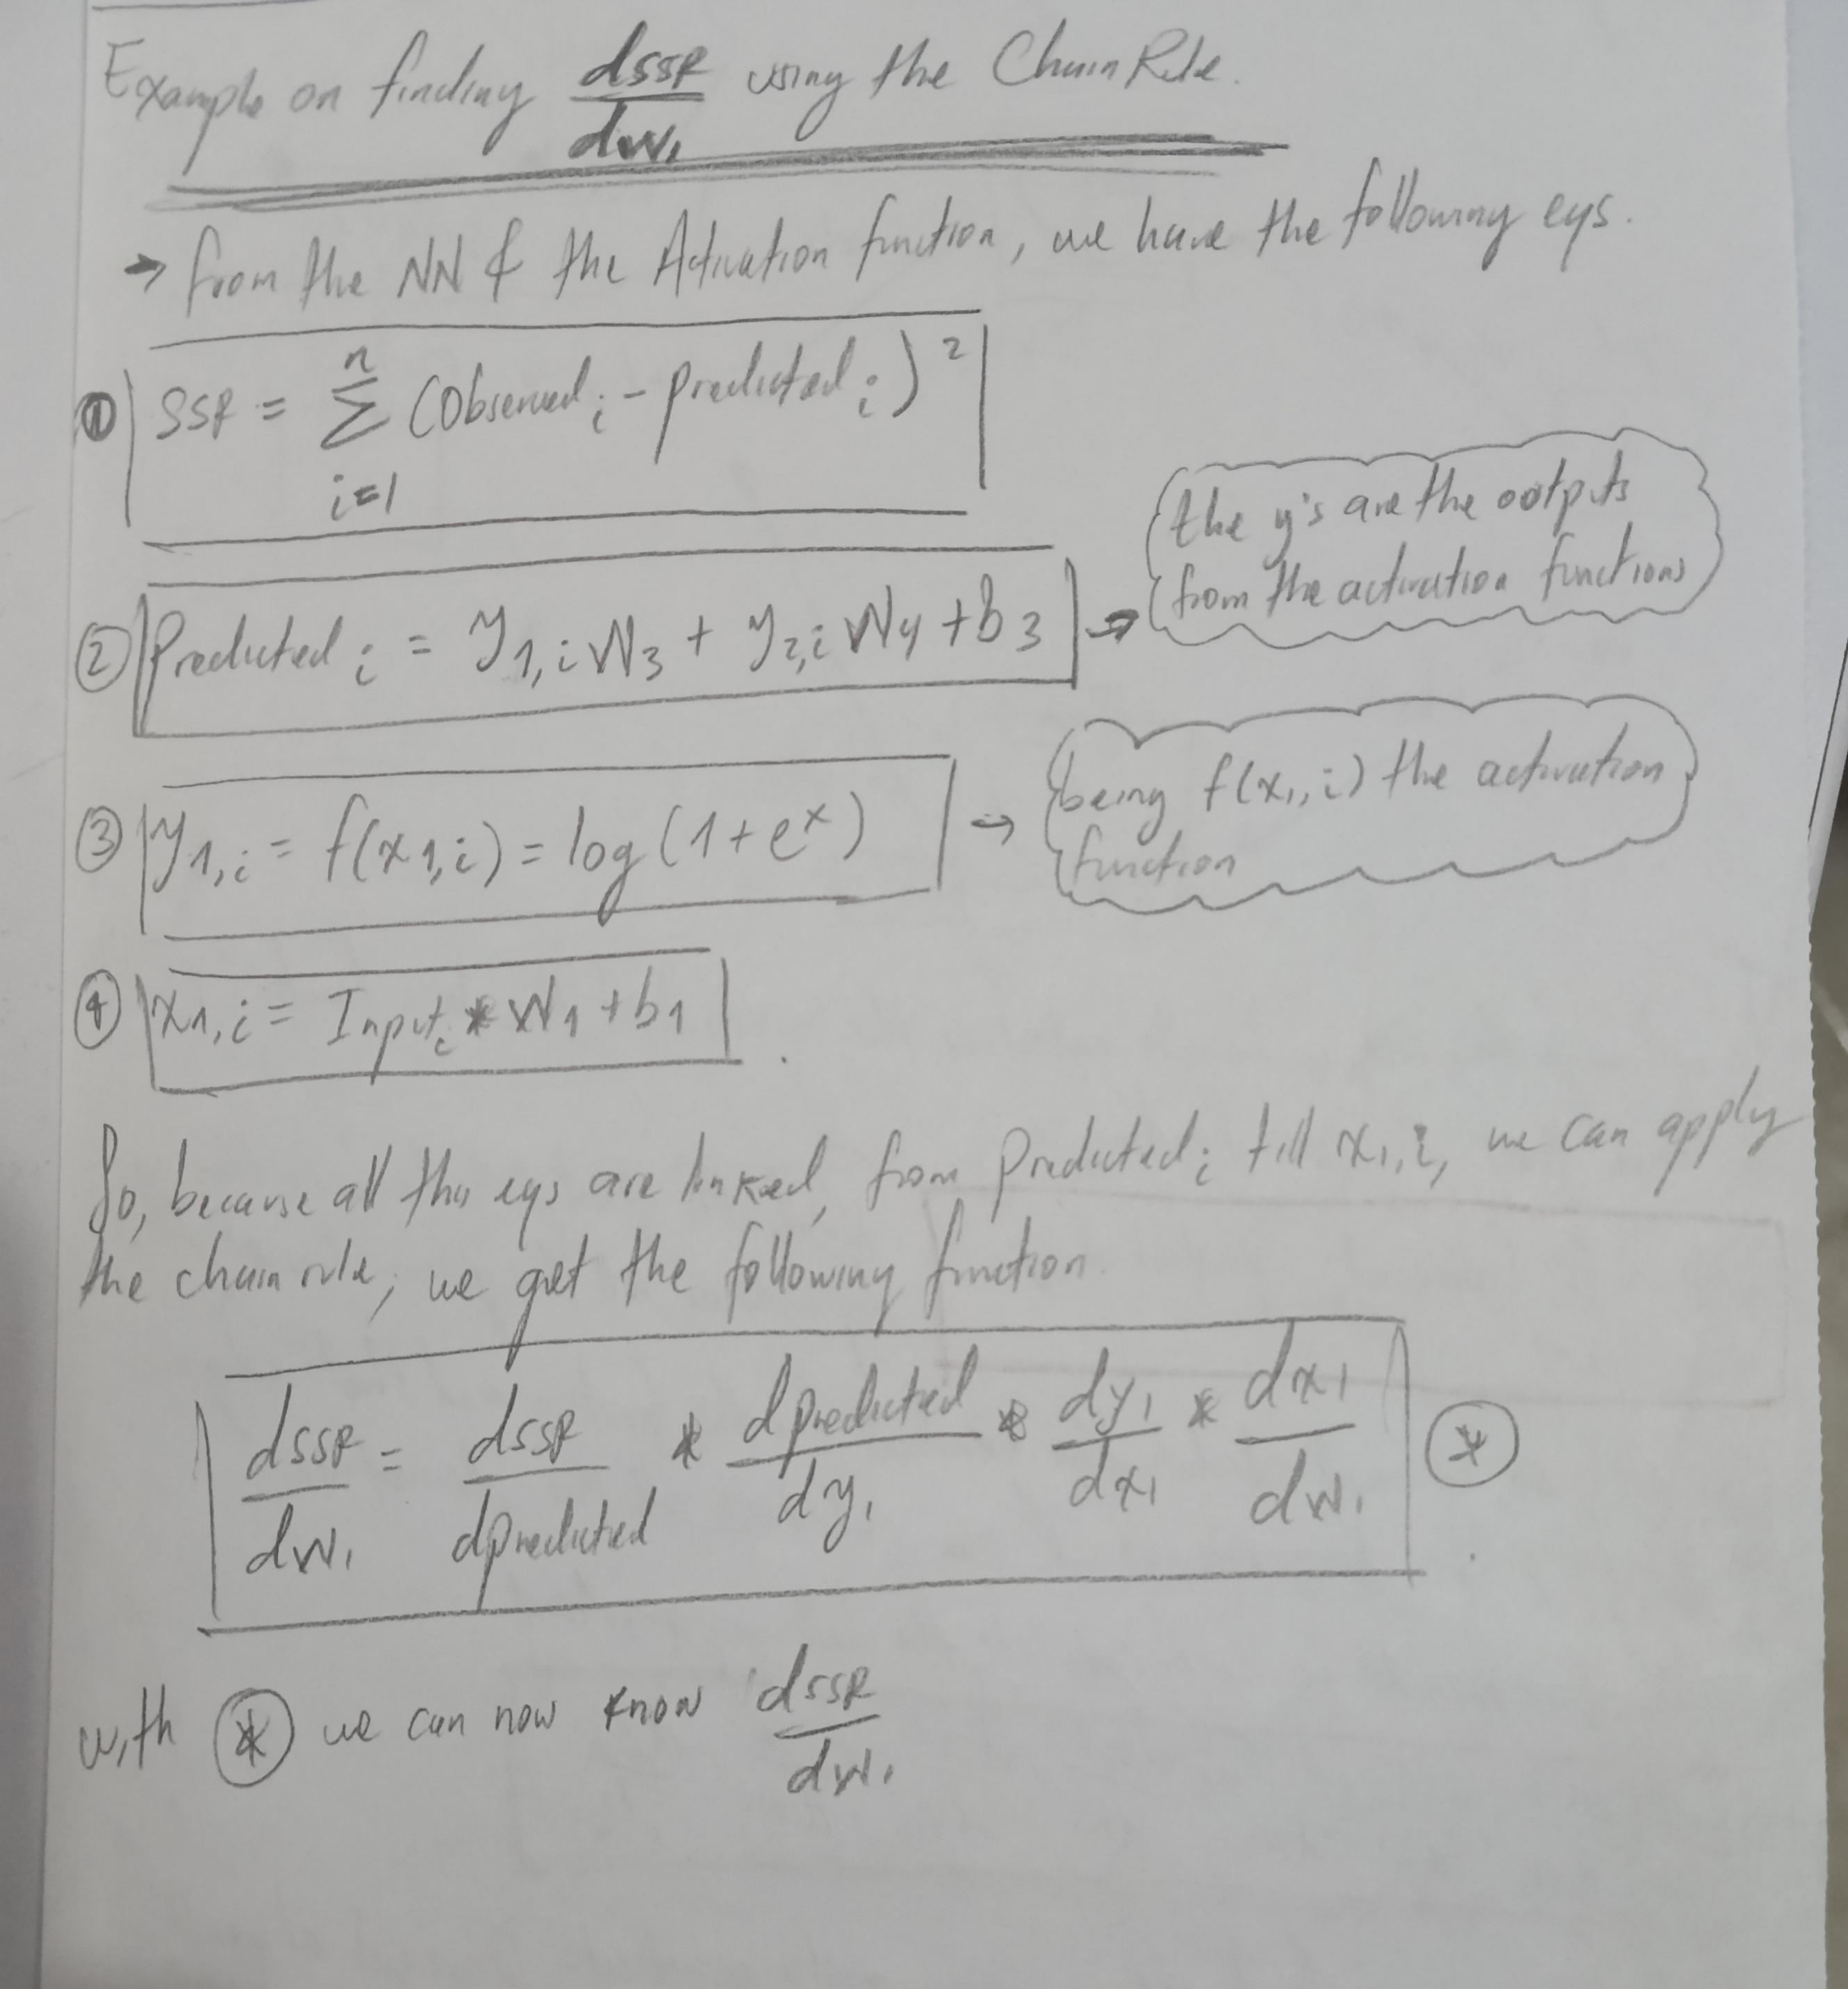 Example on finding dSSR/dW₁ using the Chain Rule.
→ from the NN & the Activation function, we have the following eqs.
① SSR = Σ_{i=1}^{n} (Observed_i - predicted_i)²
② Predicted_i = y_{1,i} W_3 + y_{2,i} W_4 + b_3 → the y's are the outputs
from the activation functions
③ y_{1,i} = f(x_{1,i}) = log(1+e^x) → being f(x_{1,i}) the activation
function
④ x_{1,i} = Input_i * W_1 + b_1
So, because all this eqs are linked, from Predicted_i till x_{1,i}, we can apply
the chain rule, we get the following function.
dSSR/dW₁ = dSSR/dpredicted * dpredicted/dy₁ * dy₁/dx₁ * dx₁/dW₁ (*)
with (*) we can now know dSSR/dW₁